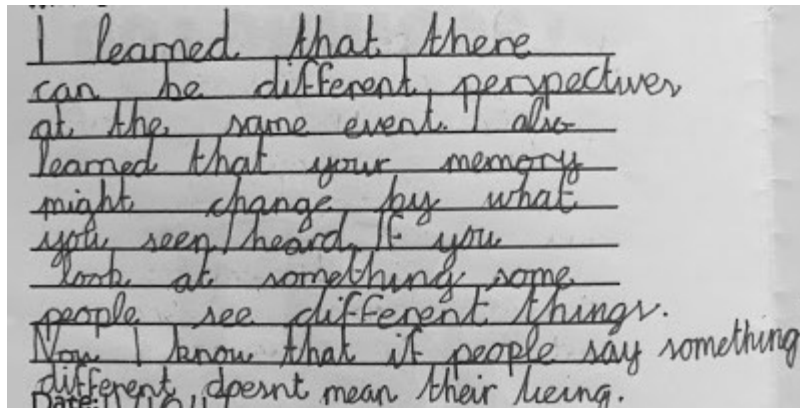 I learned that there
can be different perspectives
at the same event. I also
learned that your memory
might change by what
you seen/heard. If you
look at something some
people see different things.
Now I know that if people say something
different doesnt mean their lieing.
Date: